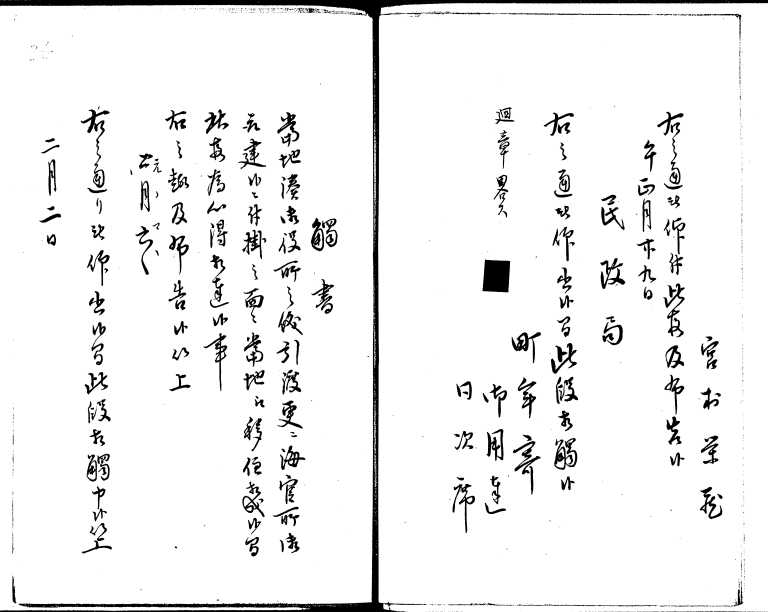 宮村
右之通被仰付此段及布告候
午正月廿九日
民政局
右之通被仰出候間此段相觸候
町年寄
御用達
日次席
廻章畧ス
觸書
當地湊御役所之儀引渡更ニ海官所御
取建候ニ付掛之面々當地江移住相成候間
此段為心得相達候事
右之趣及布告候以上
二月
右之通り被仰出候間此段相觸申候以上
二月二日